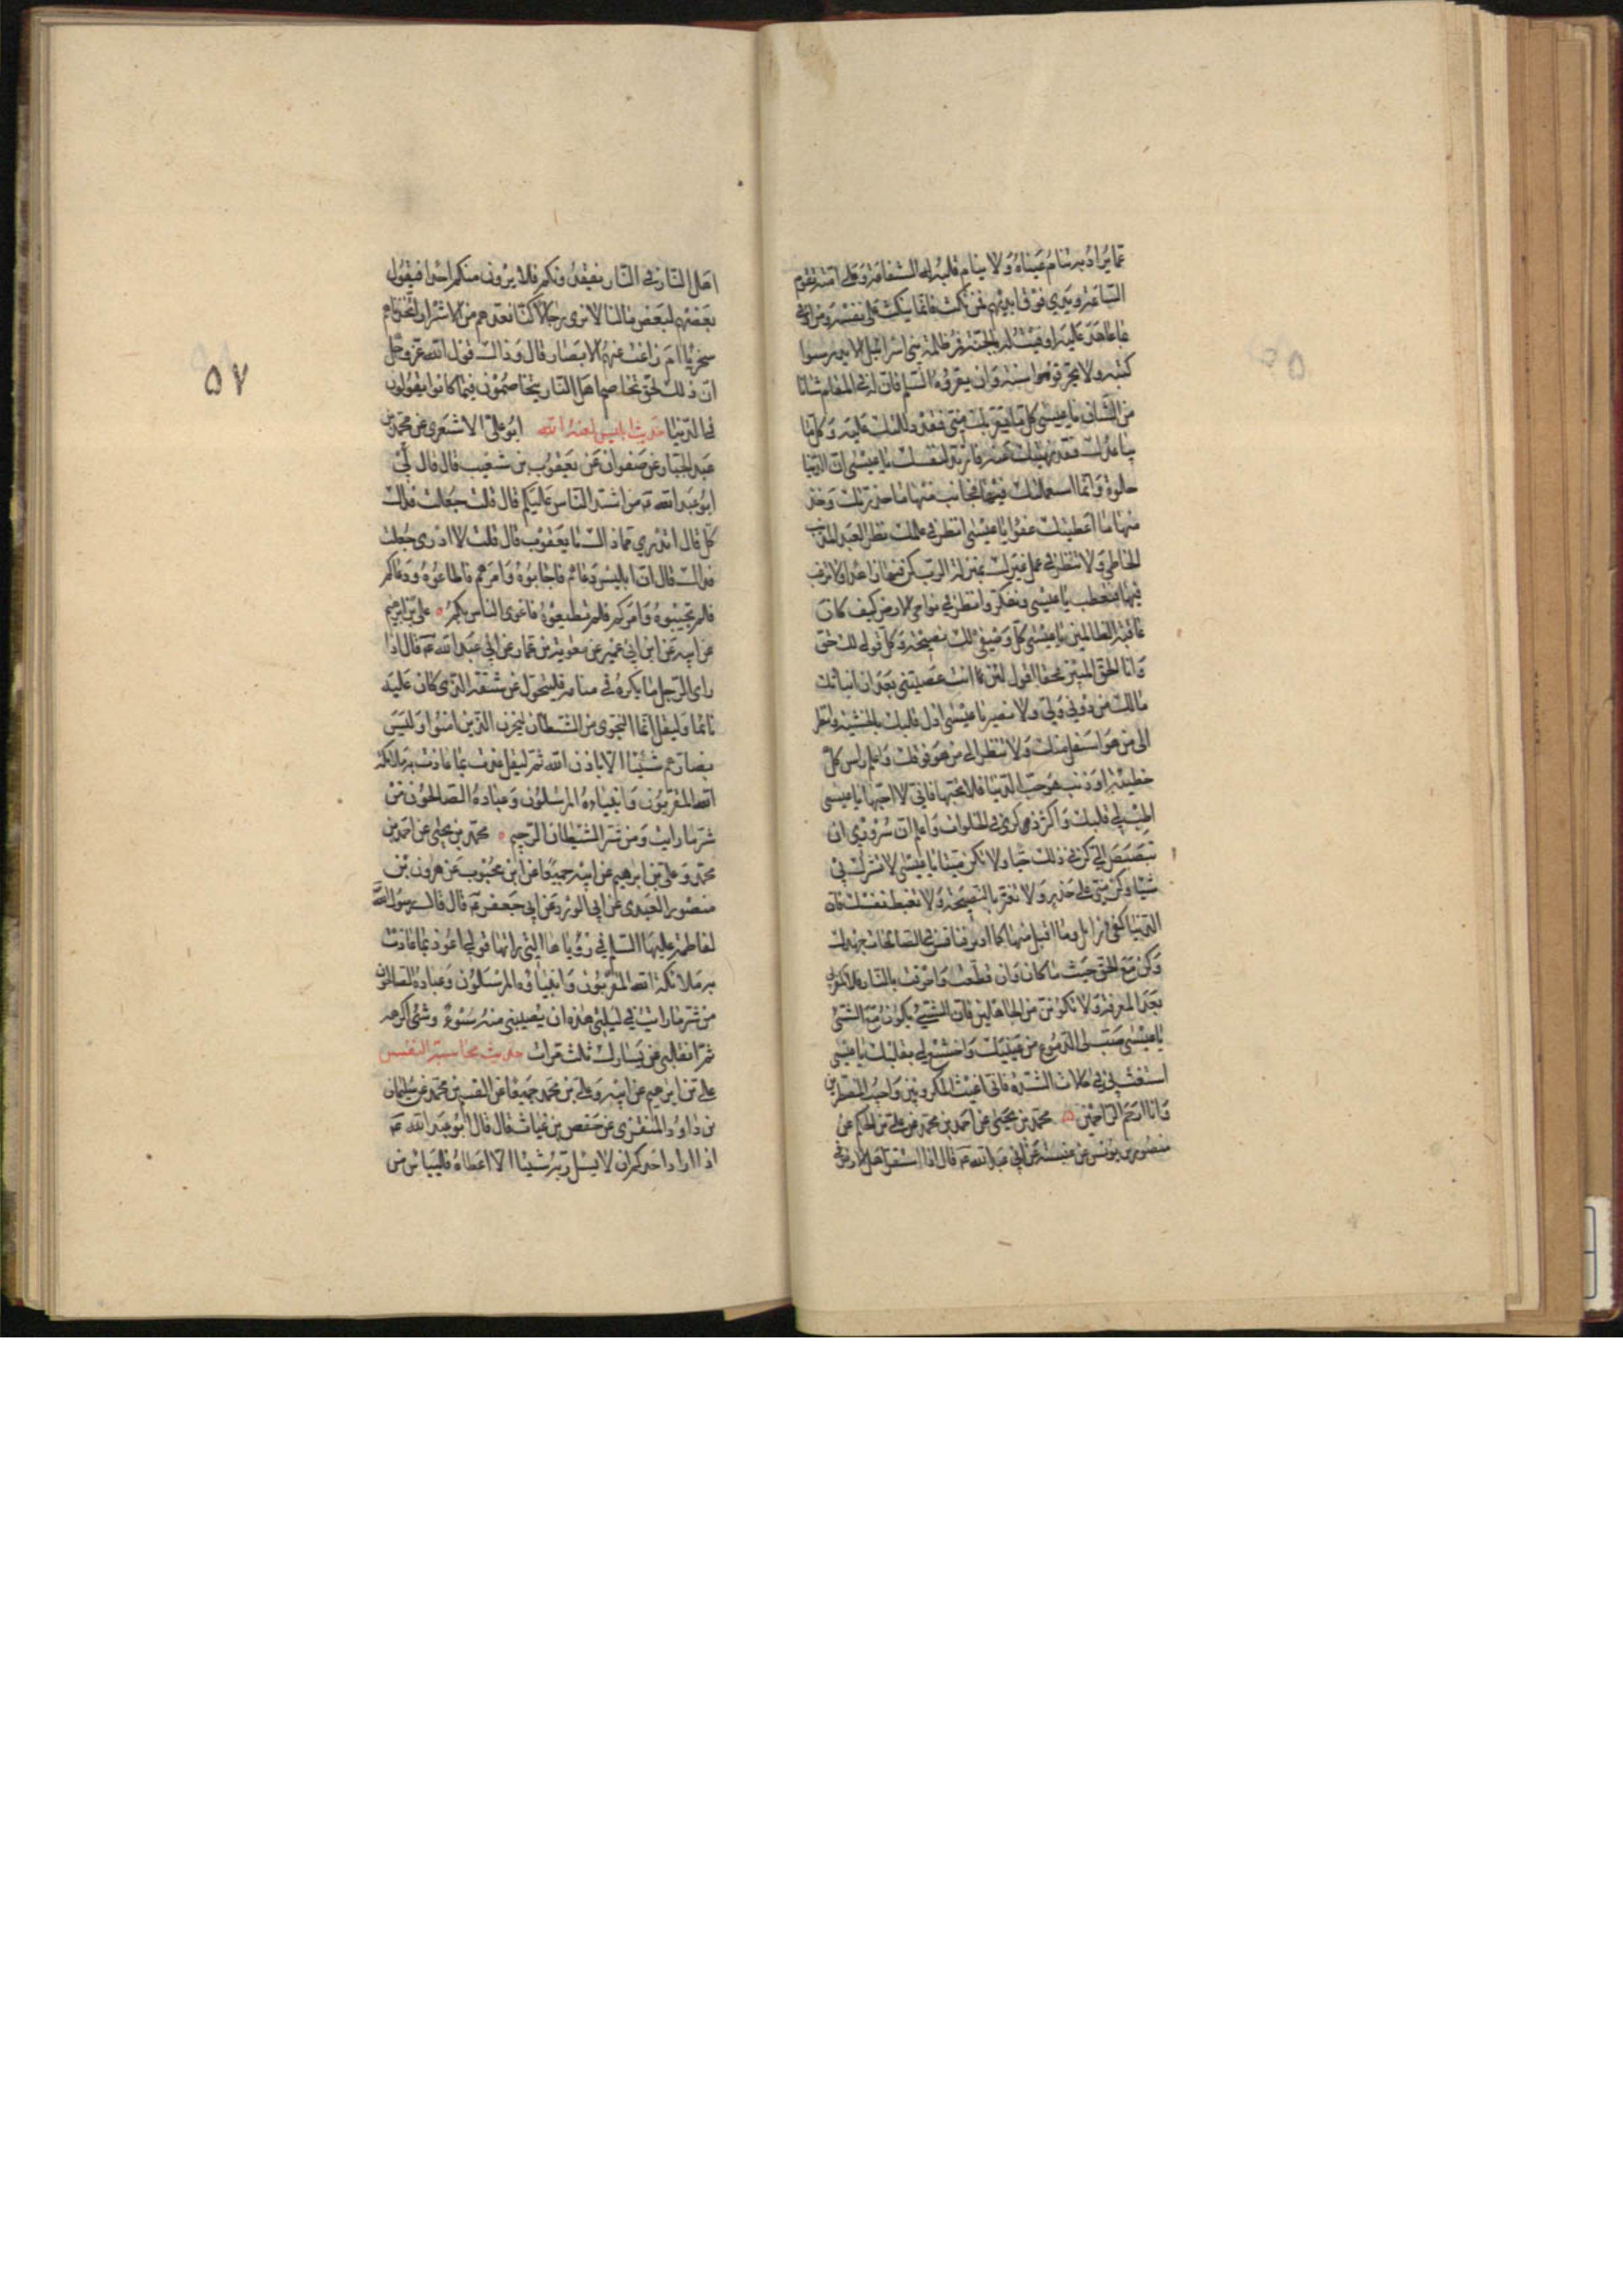 عما يراد به تنام عيناه ولا ينام قلبه له الشفاعة وعلى امته تقوم
الساعة ويدي فوق ايديهم فمن نكث فانما ينكث على نفسه ومن اوفى
بما عاهد عليه اوفيت له بالجنة فمر ظلمة بني اسرائيل الا يدرسوا
كتبه ولا يحرفوا سنته وان يقرؤه السلام فان له في المقام شانا
من الشان يا عيسى كل ما يقربك مني فقد دللتك عليه وكل ما
يباعدك مني فقد نهيتك عنه فارتد لنفسك يا عيسى ان الدنيا
حلوة وانما استعملتك فيها فجانب منها ما حذرتك وخذ
منها ما اعطيتك عفوا يا عيسى انظر في عملك نظر العبد المذنب
الخاطئ ولا تنظر في عمل غيرك بمنزلة الرب كن فيها زاهدا ولا ترغب
فيها فتعطب يا عيسى وتفكر وانظر في نواحي الارض كيف كان
عاقبة الظالمين يا عيسى كل وصيتي لك نصيحة وكل قولي لك حق
وانا الحق المبين فحقا اقول لئن انت عصيتني بعد ان انباتك
مالك من دوني ولي ولا نصير يا عيسى اذل قلبك بالخشية وانظر
الى من هو اسفل منك ولا تنظر الى من هو فوقك واعلم ان راس كل
خطيئة او ذنب هو حب الدنيا فلا تحبها فاني لا احبها يا عيسى
اطب لي قلبك واكثر ذكري في الخلوات واعلم ان سروري ان
تبصبص الي كن في ذلك حيا ولا تكن ميتا يا عيسى لا تشرك بي
شيئا وكن مني على حذر ولا تغتر بالنصيحة ولا تغبط نفسك فان
الدنيا كفئ زائل وما اقبل منها كما ادبر فنافس في الصالحات جهدك
وكن مع الحق حيث ما كان وان قطعت واحرقت بالنار فلا تكفر بي
بعد المعرفة ولا تكونن من الجاهلين فان الشئ يكون مع الشئ
يا عيسى صب لي الدموع من عينيك واخشع لي بقلبك يا عيسى
استغث بي في حالات الشدة فاني اغيث المكروبين واجيب المضطرين
وانا ارحم الراحمين محمد بن يحيى عن احمد بن محمد عن علي بن الحكم عن
منصور بن يونس عن عنبسة عن ابي عبد الله ع قال اذا استقر اهل النار في
٥٧
اهل النار في النار يفقدونكم فلا يرون منكم احدا فيقول
بعضهم لبعض ما لنا لا نرى رجالا كنا نعدهم من الاشرار اتخذناهم
سخريا ام زاغت عنهم الابصار قال وذلك قول الله عز وجل
ان ذلك لحق تخاصم اهل النار يتخاصمون فيما كانوا يقولون
في الدنيا حديث ابليس لعنه الله ابو علي الاشعري عن محمد بن
عبد الجبار عن صفوان عن يعقوب بن شعيب قال قال لي
ابو عبد الله ع من اشد الناس عليكم قال قلت جعلت فداك
كل قال اتدري مما ذاك يا يعقوب قال قلت لا ادري جعلت
فداك قال ان ابليس دعاهم فاجابوه وامرهم فاطاعوه ودعاكم
فلم تجيبوه وامركم فلم تطيعوه فاغرى الناس بكم علي بن ابرهيم
عن ابيه عن ابن ابي عمير عن معوية بن عمار عن ابي عبد الله ع قال اذا
راى الرجل ما يكره في منامه فليتحول عن شقه الذي كان عليه
نائما وليقل انما النجوى من الشيطان ليحزن الذين امنوا وليس
بضارهم شيئا الا باذن الله ثم ليقل عذت بما عاذت به ملائكة
الله المقربون وانبياءه المرسلون وعباده الصالحون من
شر ما رايت ومن شر الشيطان الرجيم محمد بن يحيى عن احمد بن
محمد وعلي بن ابرهيم عن ابيه جميعا عن ابن محبوب عن هرون بن
منصور العبدي عن ابي الورد عن ابي جعفر ع قال قال رسول الله
لفاطمة عليها السلم في رؤياها التي راتها قولي اعوذ بما عاذت
به ملائكة الله المقربون وانبياؤه المرسلون وعباده الصالحون
من شر ما رايت في ليلتي هذه ان يصيبني منه سوء وشئ اكرهه
ثم انقلبي عن يسارك ثلث مرات حديث محاسبة النفس
علي بن ابرهيم عن ابيه وعلي بن محمد جميعا عن القسم بن محمد عن سليمان
بن داود المنقري عن حفص بن غياث قال قال ابو عبد الله ع
اذا اراد احدكم ان لا يسئل ربه شيئا الا اعطاه فلييأس من